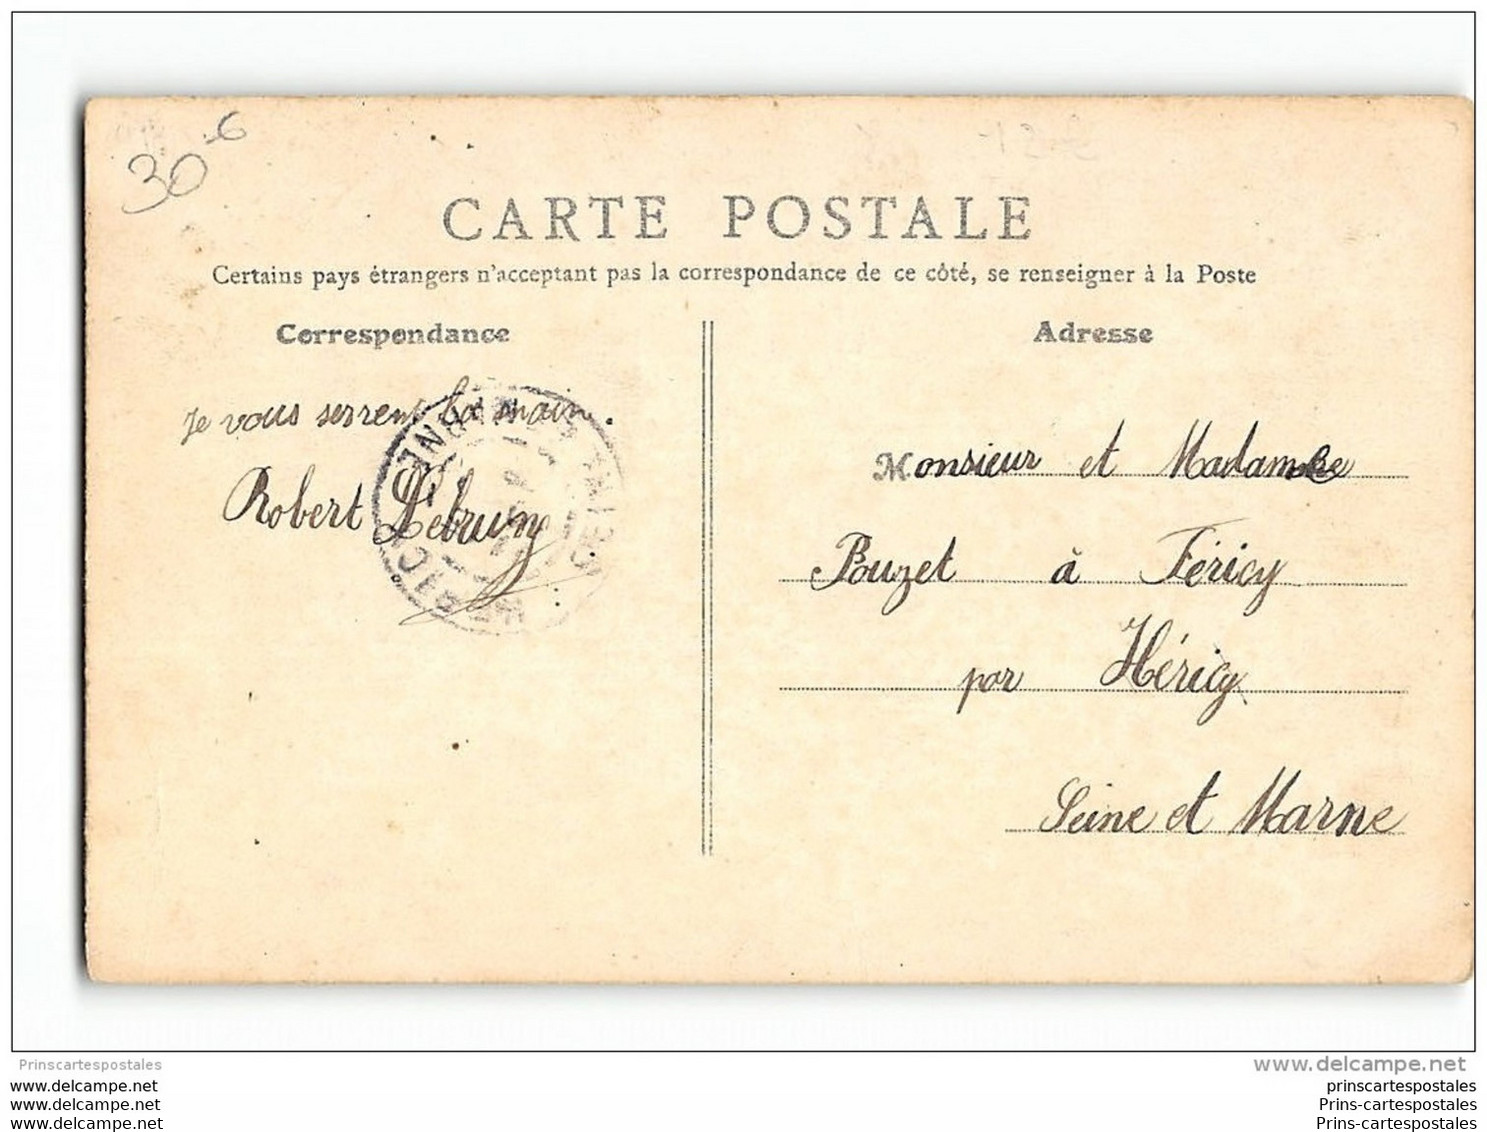 30-6
CARTE POSTALE
Certains pays étrangers n'acceptant pas la correspondance de ce côté, se renseigner à la Poste
Correspondance
Je vous serrent la main.
Robert Lebrun
SEINE ET MARNE
HERICY
Adresse
Monsieur et Madame
Pouzet à Féricy
par Héricy
Seine et Marne
Prinscartespostales
www.delcampe.net
www.delcampe.net
www.delcampe.net
www.delcampe.net
prinscartespostales
Prins-cartespostales
Prins-cartespostales